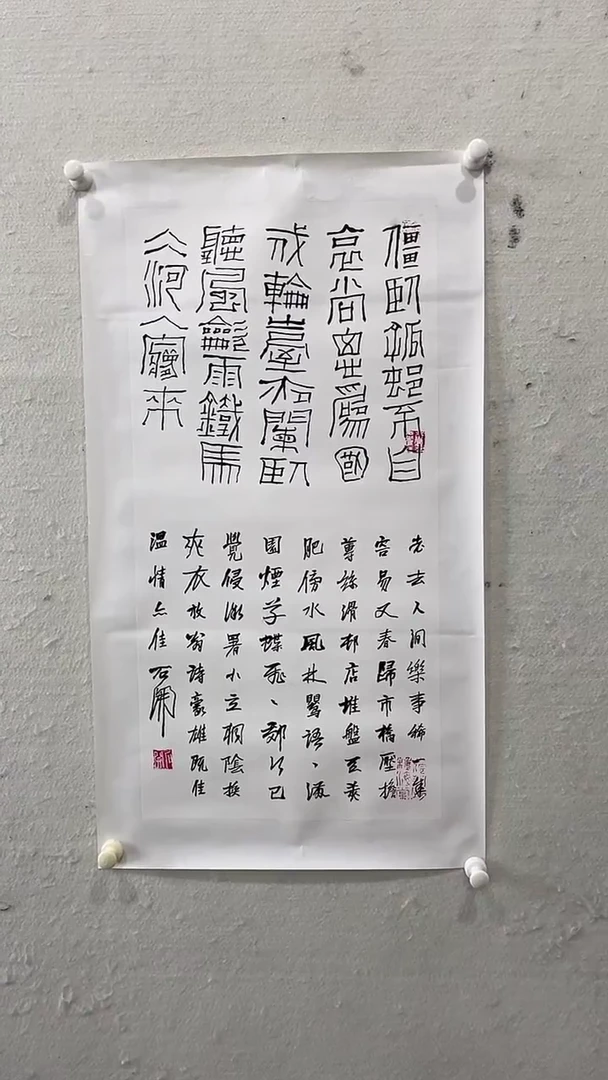 僵臥孤邨不自
哀尚思為國
戍輪臺夜闌臥
聽風龡雨鐵馬
仌河入寢來
老去人間樂事稀一年
容易又春歸市橋壓擔
蓴絲滑邨店堆盤豆莢
肥傍水風林鶯語、滿
園煙草蝶飛、郊行已
覺侵微暑小立桐陰換
夾衣放翁詩豪雄既佳
溫情亦佳石開